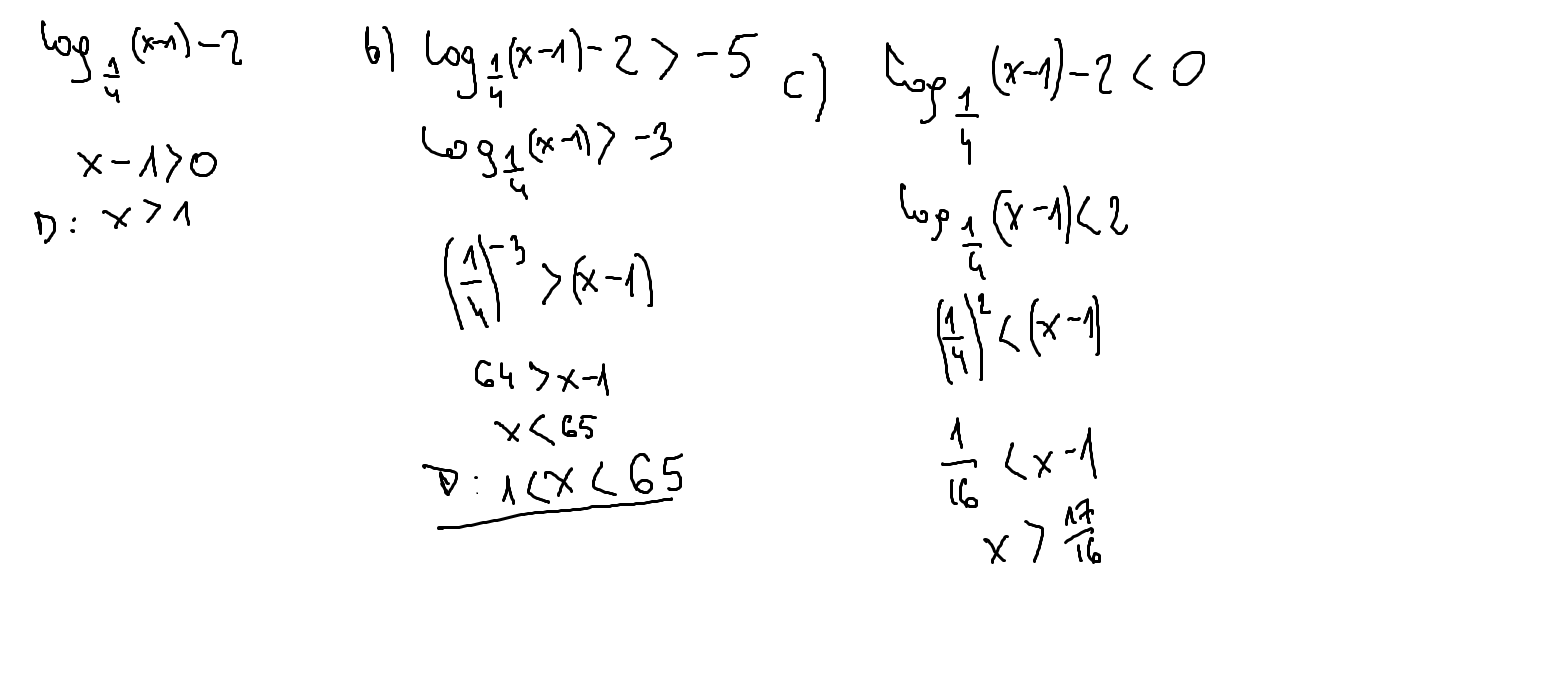 log_{1/4} (x-1) - 2
x - 1 > 0
D: x > 1
b) log_{1/4} (x-1) - 2 > -5
log_{1/4} (x-1) > -3
(1/4)^{-3} > (x-1)
64 > x-1
x < 65
D: 1 < x < 65
c) log_{1/4} (x-1) - 2 < 0
log_{1/4} (x-1) < 2
(1/4)^2 < (x-1)
1/16 < x-1
x > 17/16